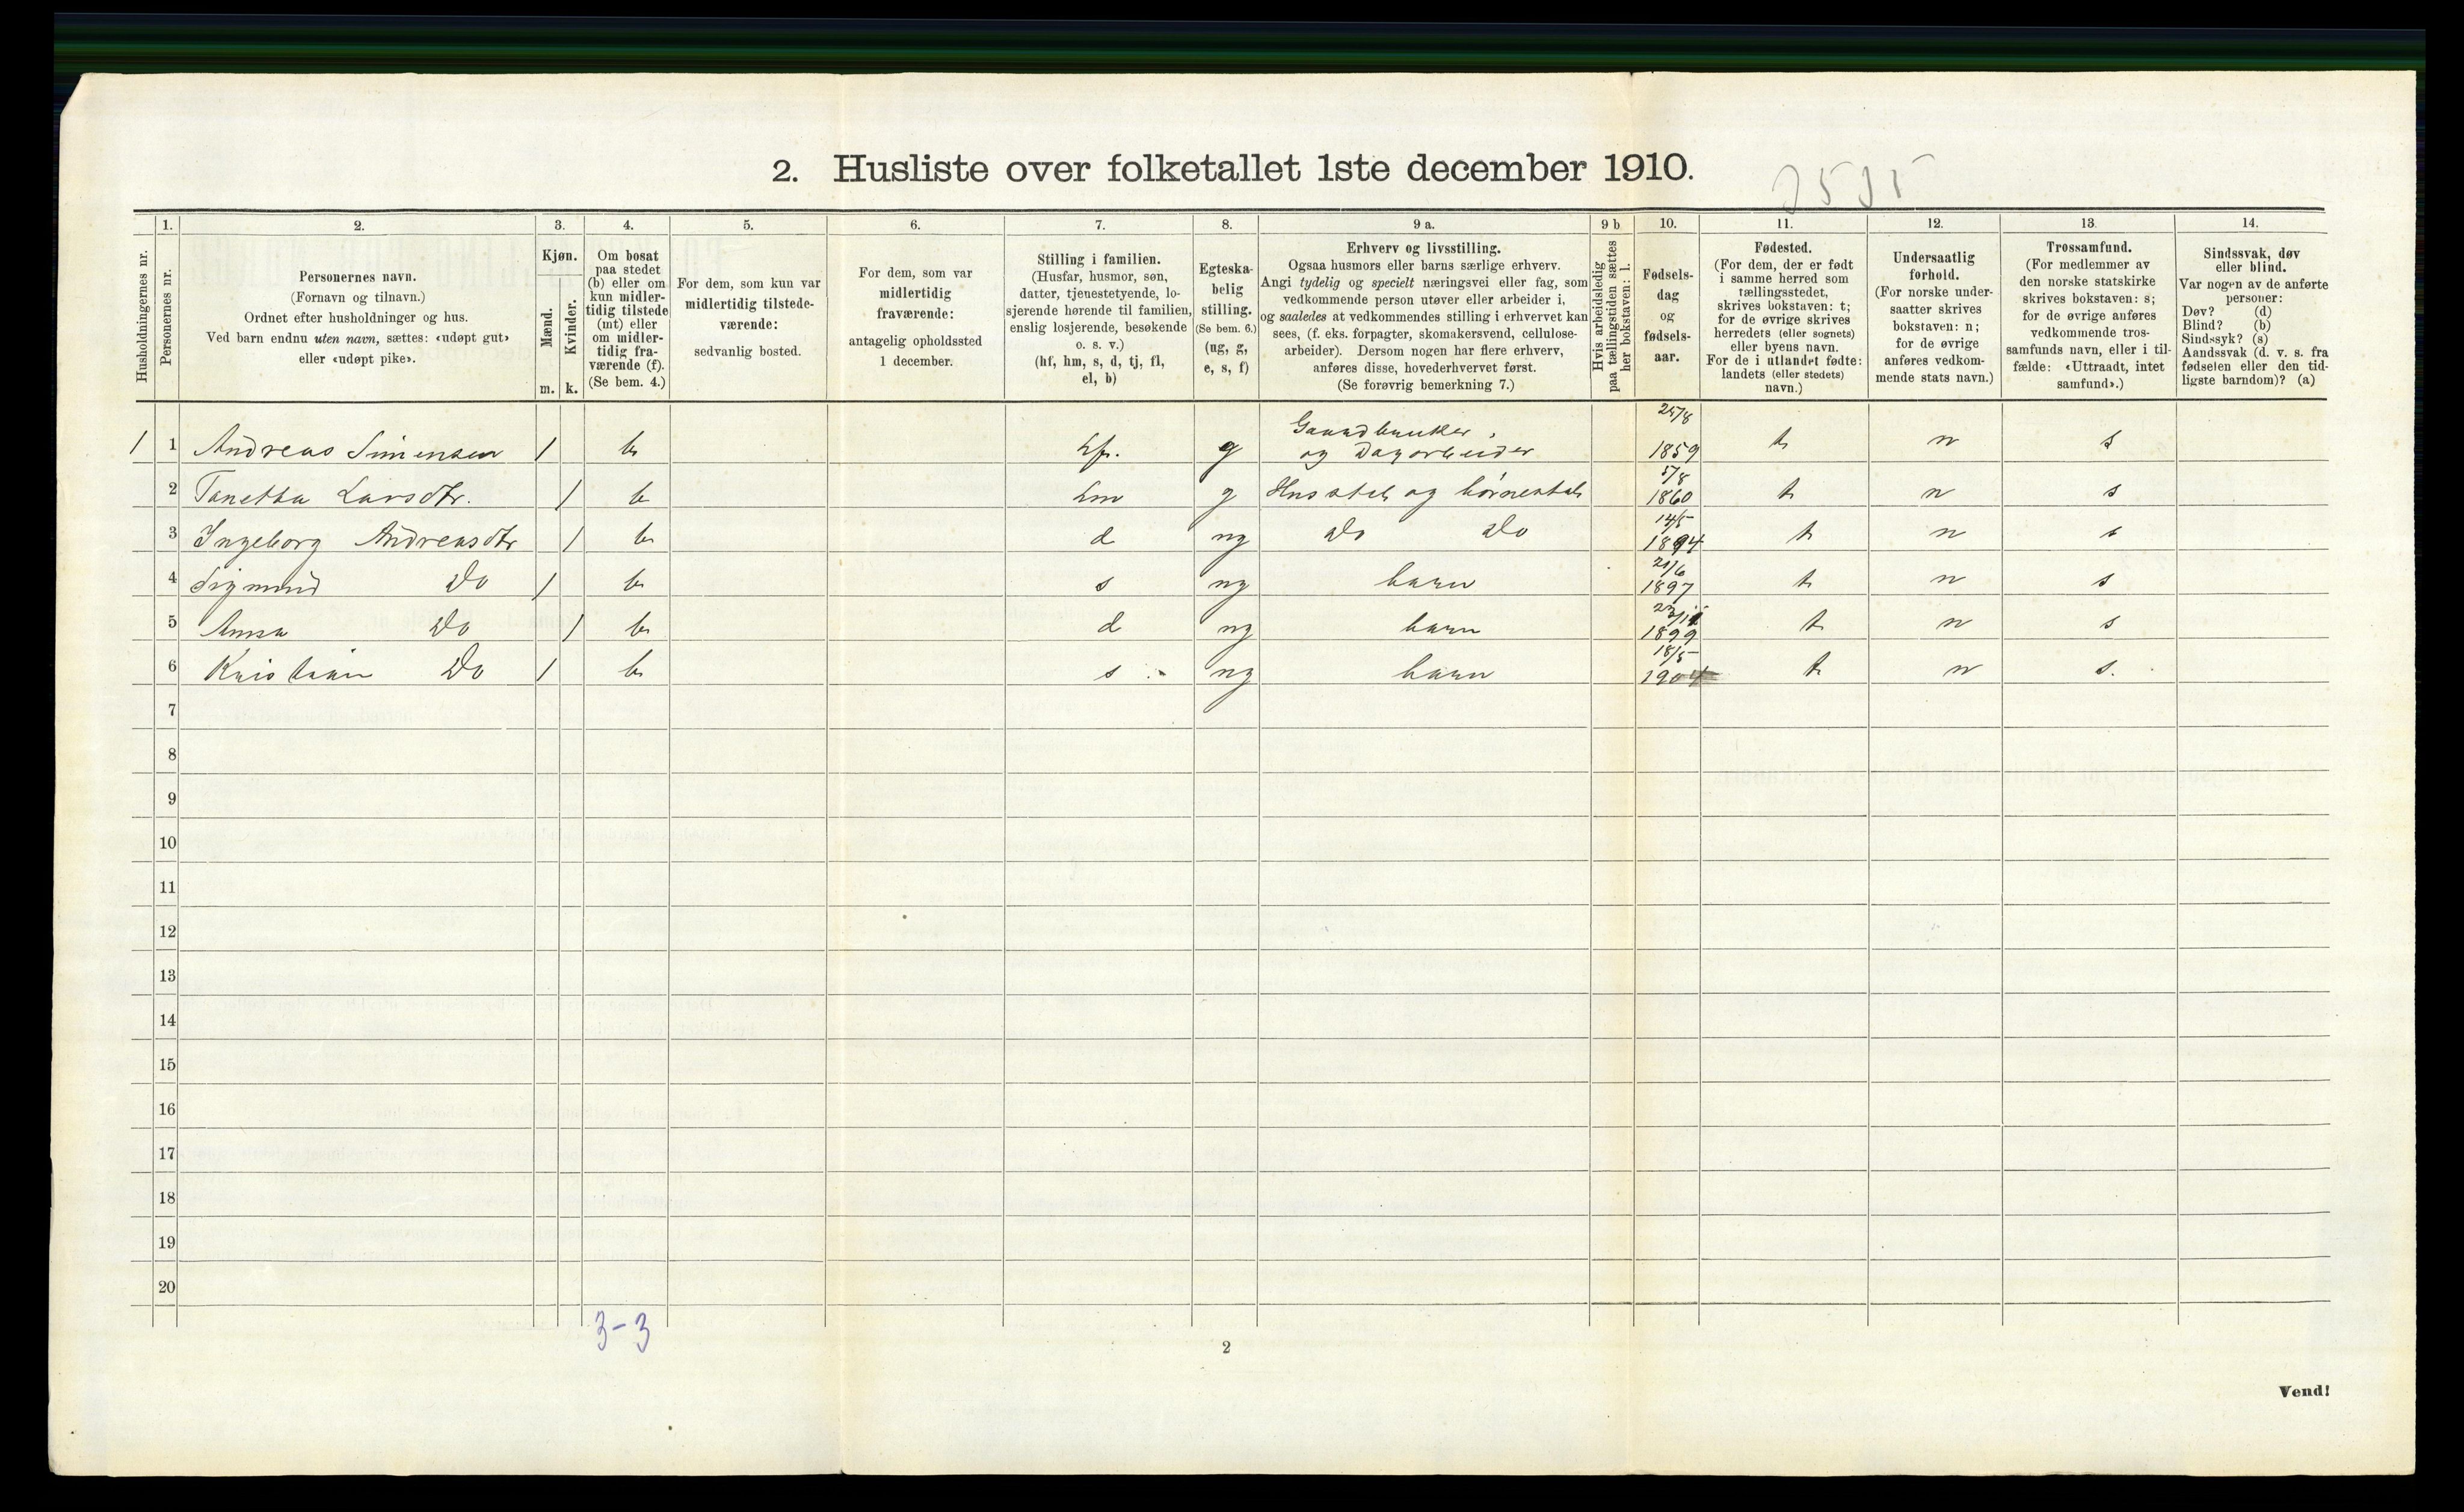 2. Husliste over folketallet 1ste december 1910.
1. 2. 3. 4. 5. 6. 7. 8. 9 a. 9 b 10. 11. 12. 13. 14.
Husholdningernes nr.
Personernes nr.
Personernes navn.
(Fornavn og tilnavn.)
Ordnet efter husholdninger og hus.
Ved barn endnu uten navn, sættes: «udøpt gut»
eller «udøpt pike».
Kjøn.
Mænd.
Kvinder.
m. k.
Om bosat
paa stedet
(b) eller om
kun midler-
tidig tilstede
(mt) eller
om midler-
tidig fra-
værende (f).
(Se bem. 4.)
For dem, som kun var
midlertidig tilstede-
værende:
sedvanlig bosted.
For dem, som var
midlertidig
fraværende:
antagelig opholdssted
1 december.
Stilling i familien.
(Husfar, husmor, søn,
datter, tjenestetyende, lo-
sjerende hørende til familien,
enslig losjerende, besøkende
o. s. v.)
(hf, hm, s, d, tj, fl,
el, b)
Egteska-
belig
stilling.
(Se bem. 6.)
(ug, g,
e, s, f)
Erhverv og livsstilling.
Ogsaa husmors eller barns særlige erhverv.
Angi tydelig og specielt næringsvei eller fag, som
vedkommende person utøver eller arbeider i,
og saaledes at vedkommendes stilling i erhvervet kan
sees, (f. eks. forpagter, skomakersvend, cellulose-
arbeider). Dersom nogen har flere erhverv,
anføres disse, hovederhvervet først.
(Se forøvrig bemerkning 7.)
Hvis arbeidsledig
paa tællingstiden sættes
her bokstaven: l.
Fødsels-
dag
og
fødsels-
aar.
Fødested.
(For dem, der er født
i samme herred som
tællingsstedet,
skrives bokstaven: t;
for de øvrige skrives
herredets (eller sognets)
eller byens navn.
For de i utlandet fødte:
landets (eller stedets)
navn.)
Undersaatlig
forhold.
(For norske under-
saatter skrives
bokstaven: n;
for de øvrige
anføres vedkom-
mende stats navn.)
Trossamfund.
(For medlemmer av
den norske statskirke
skrives bokstaven: s;
for de øvrige anføres
vedkommende tros-
samfunds navn, eller i til-
fælde: «Uttraadt, intet
samfund».)
Sindssvak, døv
eller blind.
Var nogen av de anførte
personer:
Døv? (d)
Blind? (b)
Sindssyk? (s)
Aandssvak (d. v. s. fra
fødselen eller den tid-
ligste barndom)? (a)
1 1 Andreas Simensen 1 b hf. g Gaardbruker, og Dagarbeider 25/8 1859 t n s
2 Tanetta Larsdtr. 1 b hm g Husstel og børnestel 5/8 1860 t n s
3 Ingeborg Andreasdtr 1 b d ug Do Do 14/5 1894 t n s
4 Sigmund Do 1 b s ug barn 21/6 1897 t n s
5 Anna Do 1 b d ug barn 23/11 1899 t n s
6 Kristian Do 1 b s ug barn 18/5 1904 t n s.
7
8
9
10
11
12
13
14
15
16
17
18
19
20
3-3
2
Vend!